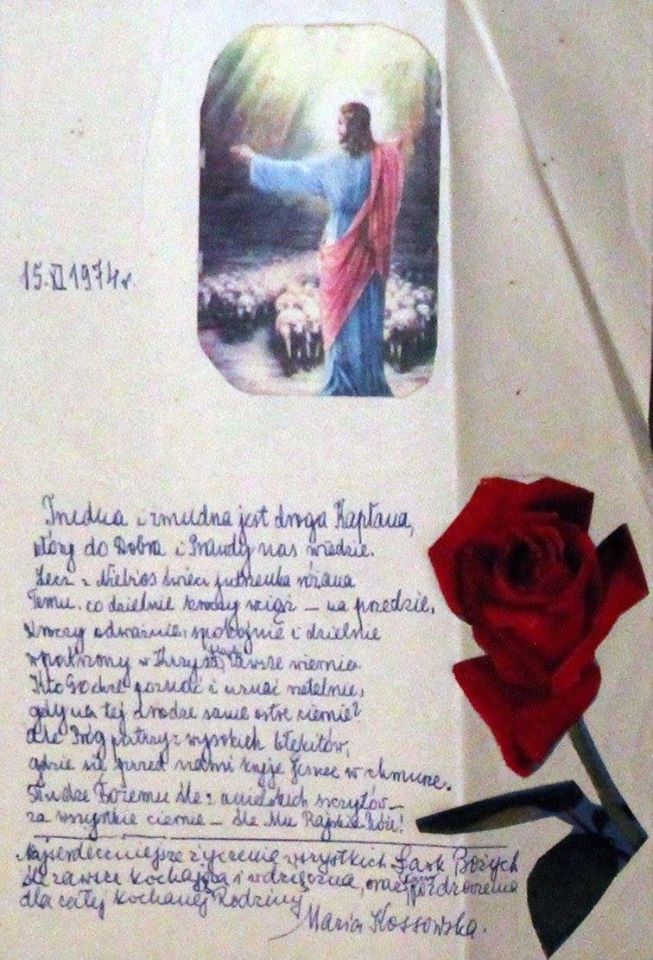 15.XI 1974 r.
Trudna i żmudna jest droga Kapłana,
który do Dobra i Prawdy nas wiedzie.
Lecz z Niebios świeci jutrzenka różana
Temu, co dzielnie kroczy wciąż – na przedzie,
Kroczy odważnie, spokojnie i dzielnie
wpatrzony w Krzyż zawsze wiernie.
Kto Go chce poznać i uznać rzetelnie,
gdy na tej drodze same ostre ciernie?
Ale Bóg patrzy z wysokich błękitów,
gdzie się przed nami kryje jeszcze w chmurze.
Słudze Bożemu śle z anielskich szczytów –
za wszystkie ciernie – śle Mu Rajskie Róże!
Najserdeczniejsze życzenia wszystkich Łask Bożych
śle zawsze kochająca i wdzięczna, oraz pozdrowienia
dla całej kochanej Rodziny
Maria Kossowska.